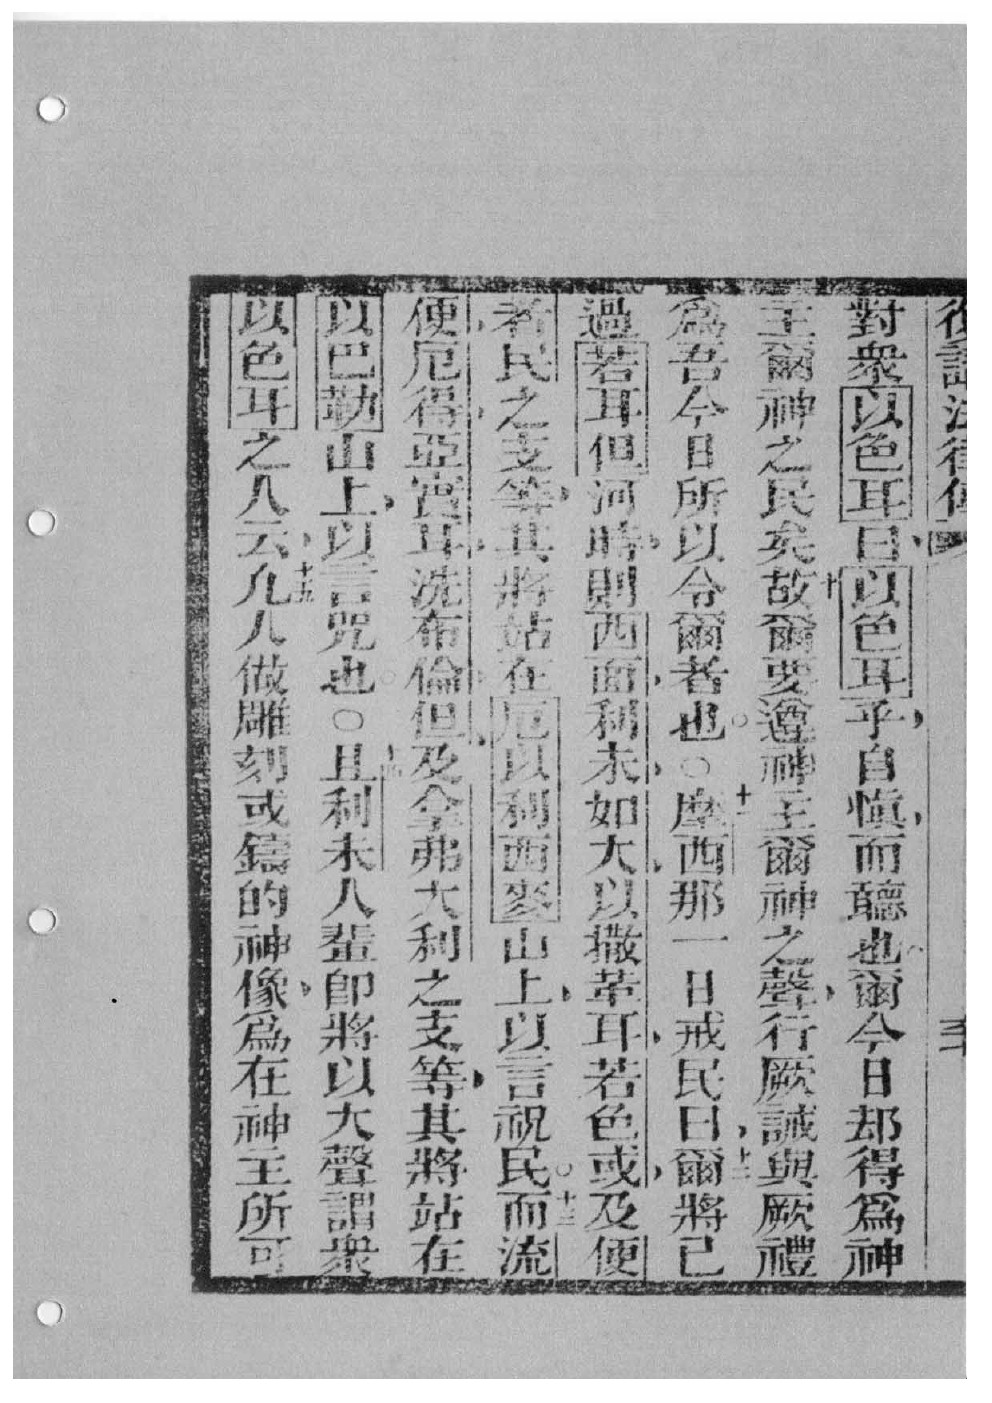 復講法律傳
對衆以色耳曰以色耳乎自愼而聽也爾今日却得爲神
十
主爾神之民矣故爾要遵神主爾神之聲行厥誡與厥禮
十一
爲吾今日所以令爾者也○摩西那一日戒民曰爾將已
十二
過若耳但河時則西面利未如大以撒革耳若色或及便
者民之支等其將站在厄以利西麥山上以言祝民而流
十三
便厄得亞實耳洗布倫但及拿弗大利之支等其將站在
以巴勒山上以言咒也○且利未人輩卽將以大聲謂衆
十四
以色耳之人云凡人做雕刻或鑄的神像爲在神主所可
十五